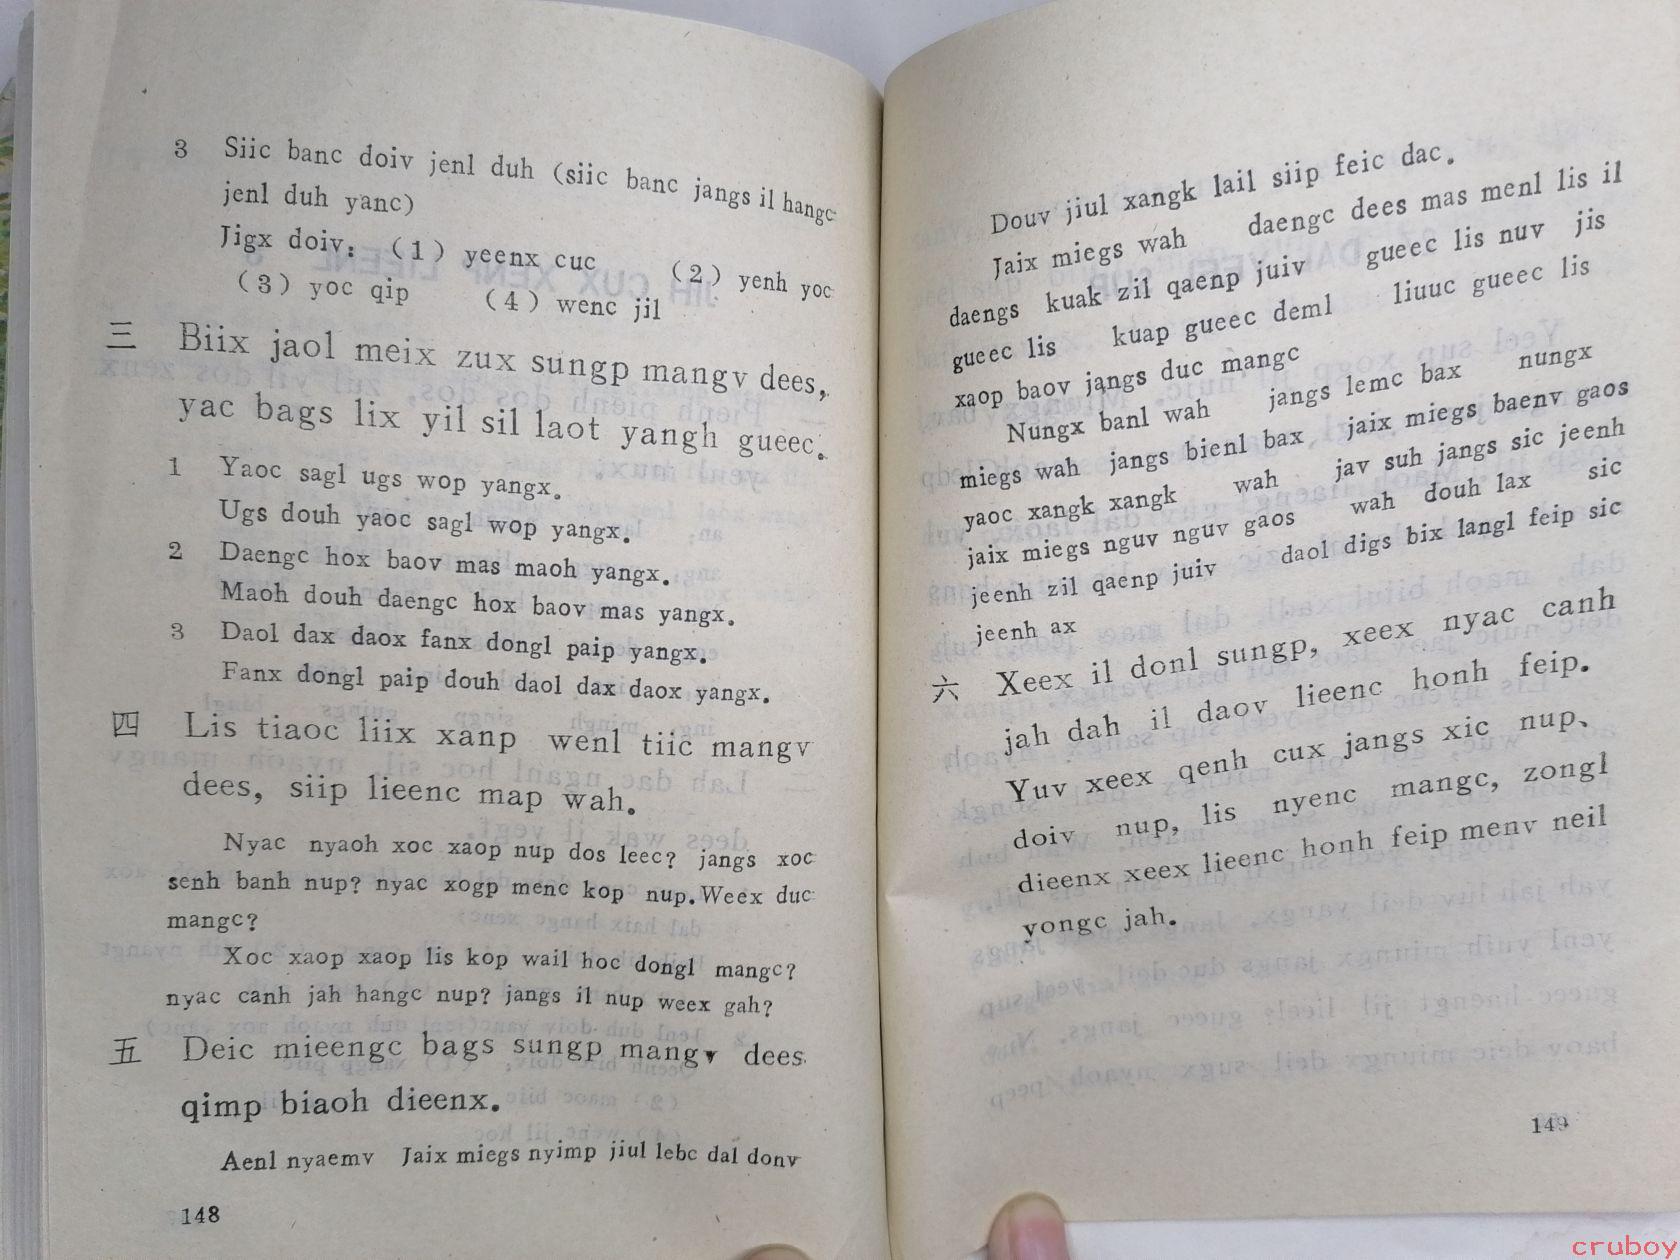 3 Siic banc doiv jenl duh (siic banc jangs il hangc
jenl duh yanc)
Jigx doiv: (1) yeenx cuc (2) yenh yoc
(3) yoc qip (4) wenc jil
三 Biix jaol meix zux sungp mangv dees,
yac bags lix yil sil laot yangh gueec.
1 Yaoc sagl ugs wop yangx.
Ugs douh yaoc sagl wop yangx.
2 Daengc hox baov mas maoh yangx.
Maoh douh daengc hox baov mas yangx.
3 Daol dax daox fanx dongl paip yangx.
Fanx dongl paip douh daol dax daox yangx.
四 Lis tiaoc liix xanp wenl tiic mangv
dees, siip lieenc map wah.
Nyac nyaoh xoc xaop nup dos leec? jangs xoc
senh banh nup? nyac xogp menc kop nup. Weex duc
mangc?
Xoc xaop xaop lis kop wail hoc dongl mangc?
nyac canh jah hangc nup? jangs il nup weex gah?
五 Deic mieengc bags sungp mangv dees
qimp biaoh dieenx.
Aenl nyaemv Jaix miegs nyimp jiul lebc dal donv
148
Douv jiul xangk lail siip feic dac.
Jaix miegs wah daengc dees mas menl lis il
daengs kuak zil qaenp juiv gueec lis nuv jis
gueec lis kuap gueec deml liuuc gueec lis
xaop baov jangs duc mangc
Nungx banl wah jangs lemc bax nungx
miegs wah jangs bienl bax jaix miegs baenv gaos
yaoc xangk xangk wah jav suh jangs sic jeenh
jaix miegs nguv nguv gaos wah douh lax sic
jeenh zil qaenp juiv daol digs bix langl feip sic
jeenh ax
六 Xeex il donl sungp, xeex nyac canh
jah dah il daov lieenc honh feip.
Yuv xeex qenh cux jangs xic nup、
doiv nup, lis nyenc mangc, zongl
dieenx xeex lieenc honh feip menv neil
yongc jah.
149
cruboy